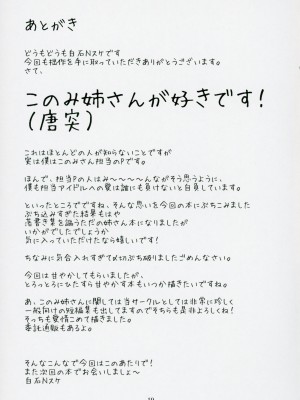 あとがき
どうもどうも白石Nスケです
今回も拙作を手に取っていただきありがとうございます。
さて、
このみ姉さんが好きです!
(唐突)
これはほとんどの人が知らないことですが
実は僕はこのみさん担当のPです。
ほんで、担当Pの人はみ〜〜〜〜んながそう思うように、
僕も担当アイドルへの愛は誰にも負けないと自負しています。
といったところでですね、そんな愛を今回の本にぶちこみました
ぶち込みすぎた結果もはや
落書き葉を謳うただの姉さん本になりましたが
いかがでしたでしょうか
気に入っていただけたなら嬉しいです!
ちなみに気合入れすぎて〆切ぶち破りましたごめんなさい。
今回は甘やかしてもらいましたが、
とろっとろにひたすら甘やかす本もいつか描きたいですね。
あ、このみ姉さんに関しては当サークルとしては非常に珍しく
一般向けの短編集も出してますのでそちらも是非よろしくね!
そっちも愛情こめて描きました。
委託通販もあるよ。
そんなこんなで今回はこのあたりで!
また次回の本でお会いしましょ〜
白石Nスケ
19